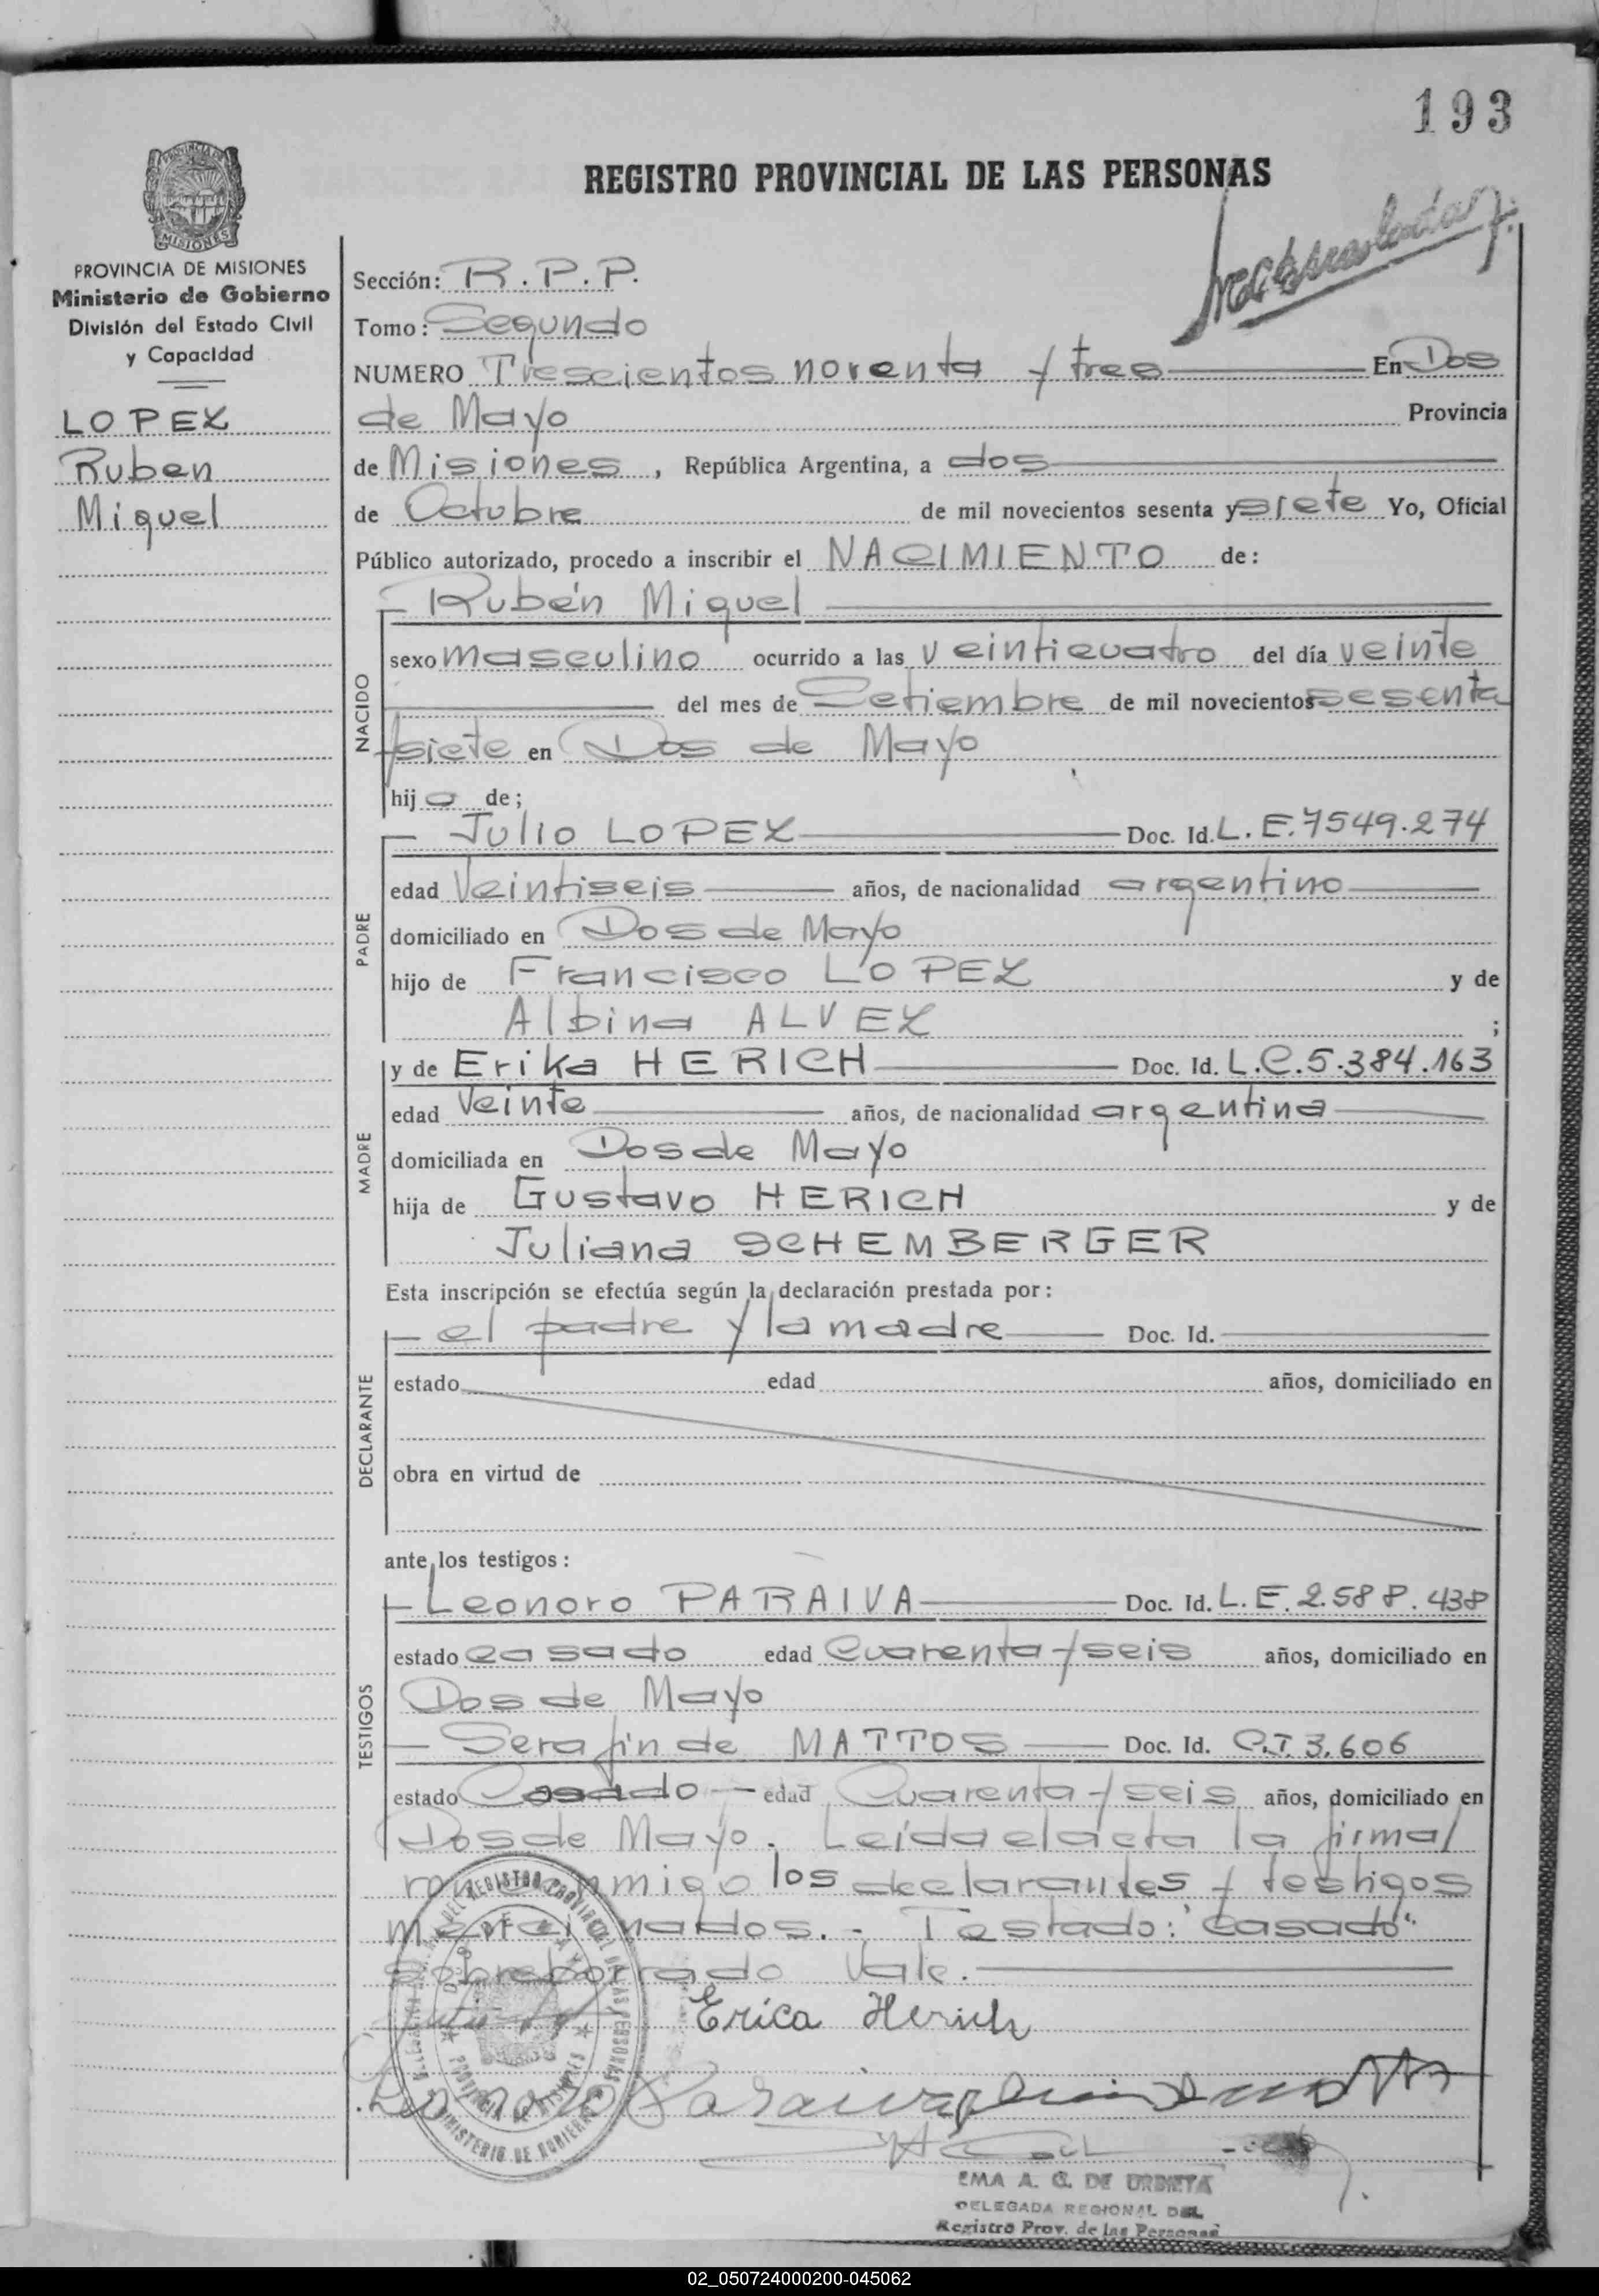 193
REGISTRO PROVINCIAL DE LAS PERSONAS
PROVINCIA DE MISIONES
MISIONES
PROVINCIA DE MISIONES
Ministerio de Gobierno
División del Estado Civil
y Capacidad
LOPEZ
Ruben
Miguel
Sección: R.P.P.
Tomo: Segundo
NUMERO Trescientos noventa y tres En Dos
de Mayo Provincia
de Misiones, República Argentina, a dos
de Octubre de mil novecientos sesenta y siete Yo, Oficial
Público autorizado, procedo a inscribir el NACIMIENTO de:
Rubén Miguel
NACIDO
sexo masculino ocurrido a las veinticuatro del día veinte
del mes de Setiembre de mil novecientos sesenta
y siete en Dos de Mayo
hijo de;
Julio LOPEZ Doc. Id. L.E. 7549.274
PADRE
edad Veintiseis años, de nacionalidad argentino
domiciliado en Dos de Mayo
hijo de Francisco LOPEZ y de
Albina ALVEZ ;
y de Erika HERICH Doc. Id. L.C. 5.384.163
MADRE
edad Veinte años, de nacionalidad argentina
domiciliada en Dos de Mayo
hija de Gustavo HERICH y de
Juliana SCHEMBERGER
Esta inscripción se efectúa según la declaración prestada por:
el padre y la madre Doc. Id.
DECLARANTE
estado edad años, domiciliado en
obra en virtud de
ante los testigos:
Leonoro PARAIVA Doc. Id. L.E. 2.588.438
TESTIGOS
estado casado edad Cuarenta y seis años, domiciliado en
Dos de Mayo
Serafin de MATTOS Doc. Id. C.I. 3.606
estado Casado edad Cuarenta y seis años, domiciliado en
Dos de Mayo. Leída el acta la firman
conmigo los declarantes y testigos
mencionados.- Testado: "casado"
Sobreborrado Vale.
Erica Herich
REGISTRO PROVINCIAL DE LAS PERSONAS
DOS DE MAYO
PROVINCIA DE MISIONES
MINISTERIO DE GOBIERNO
EMA A. G. DE URBIETA
DELEGADA REGIONAL DEL
Registro Prov. de las Personas
02_050724000200-045062